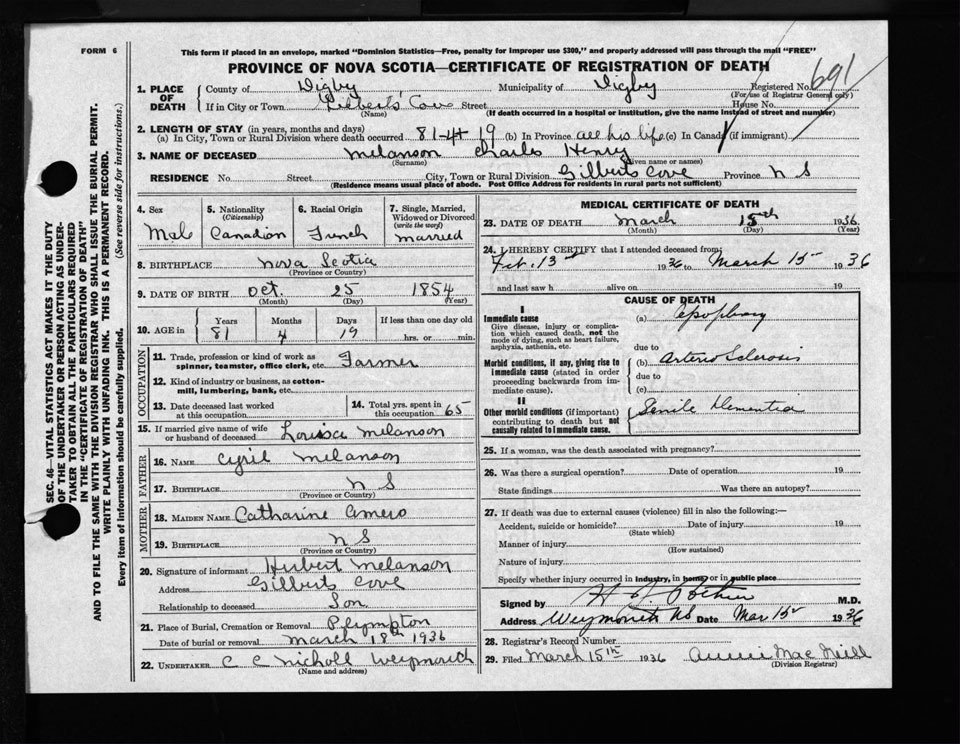 FORM 6
This form if placed in an envelope, marked "Dominion Statistics—Free, penalty for improper use $300," and properly addressed will pass through the mail "FREE"
PROVINCE OF NOVA SCOTIA—CERTIFICATE OF REGISTRATION OF DEATH
691
1. PLACE OF DEATH County of Digby Municipality of Digby Registered No.
(For use of Registrar General only)
If in City or Town Gilberts Cove Street House No.
(Name) (If death occurred in a hospital or institution, give the name instead of street and number)
2. LENGTH OF STAY (in years, months and days)
(a) In City, Town or Rural Division where death occurred 81-4-19 (b) In Province all his life (c) In Canada (if immigrant)
3. NAME OF DECEASED Melanson Charles Henry
(Surname) (Given name or names)
RESIDENCE No. Street City, Town or Rural Division Gilberts Cove Province N S
(Residence means usual place of abode. Post Office Address for residents in rural parts not sufficient)
4. Sex Male
5. Nationality (Citizenship) Canadian
6. Racial Origin French
7. Single, Married, Widowed or Divorced (write the word) Married
8. BIRTHPLACE Nova Scotia
(Province or Country)
9. DATE OF BIRTH Oct. 25 1854
(Month) (Day) (Year)
10. AGE in Years 81 Months 4 Days 19 If less than one day old hrs. or min.
OCCUPATION
11. Trade, profession or kind of work as spinner, teamster, office clerk, etc. Farmer
12. Kind of industry or business, as cotton-mill, lumbering, bank, etc.
13. Date deceased last worked at this occupation
14. Total yrs. spent in this occupation 65
15. If married give name of wife or husband of deceased Louisa Melanson
FATHER
16. NAME Cyril Melanson
17. BIRTHPLACE N S
(Province or Country)
MOTHER
18. MAIDEN NAME Catharine Amero
19. BIRTHPLACE N S
(Province or Country)
20. Signature of informant Herbert Melanson
Address Gilberts Cove
Relationship to deceased Son
21. Place of Burial, Cremation or Removal Plympton
Date of burial or removal March 18th 1936
22. UNDERTAKER C C Nicholl Weymouth
(Name and address)
MEDICAL CERTIFICATE OF DEATH
23. DATE OF DEATH March 15th 1936
(Month) (Day) (Year)
24. I HEREBY CERTIFY that I attended deceased from
Feb. 13th 1936 to March 15 1936
and last saw h alive on 19
CAUSE OF DEATH
I
Immediate cause
Give disease, injury or complication which caused death, not the mode of dying, such as heart failure, asphyxia, asthenia, etc.
(a) Apoplexy
due to
Morbid conditions, if any, giving rise to Immediate cause (stated in order proceeding backwards from immediate cause).
(b) Arterio Sclerosis
due to
(c)
II
Other morbid conditions (if important) contributing to death but not causally related to immediate cause.
Senile Dementia
25. If a woman, was the death associated with pregnancy?
26. Was there a surgical operation? Date of operation 19
State findings Was there an autopsy?
27. If death was due to external causes (violence) fill in also the following:—
Accident, suicide or homicide? Date of injury 19
(State which)
Manner of injury
(How sustained)
Nature of injury
Specify whether injury occurred in industry, in home, or in public place
Signed by M.D.
Address Weymouth NS Date Mar 15 1936
28. Registrar's Record Number
29. Filed March 15th 1936 Annie MacNeill
(Division Registrar)
SEC. 46—VITAL STATISTICS ACT MAKES IT THE DUTY
OF THE UNDERTAKER OR PERSON ACTING AS UNDER-
TAKER TO OBTAIN ALL THE PARTICULARS REQUIRED
IN THE "CERTIFICATE OF REGISTRATION OF DEATH"
AND TO FILE THE SAME WITH THE DIVISION REGISTRAR WHO SHALL ISSUE THE BURIAL PERMIT.
WRITE PLAINLY WITH UNFADING INK. THIS IS A PERMANENT RECORD.
Every item of information should be carefully supplied. (See reverse side for instructions.)